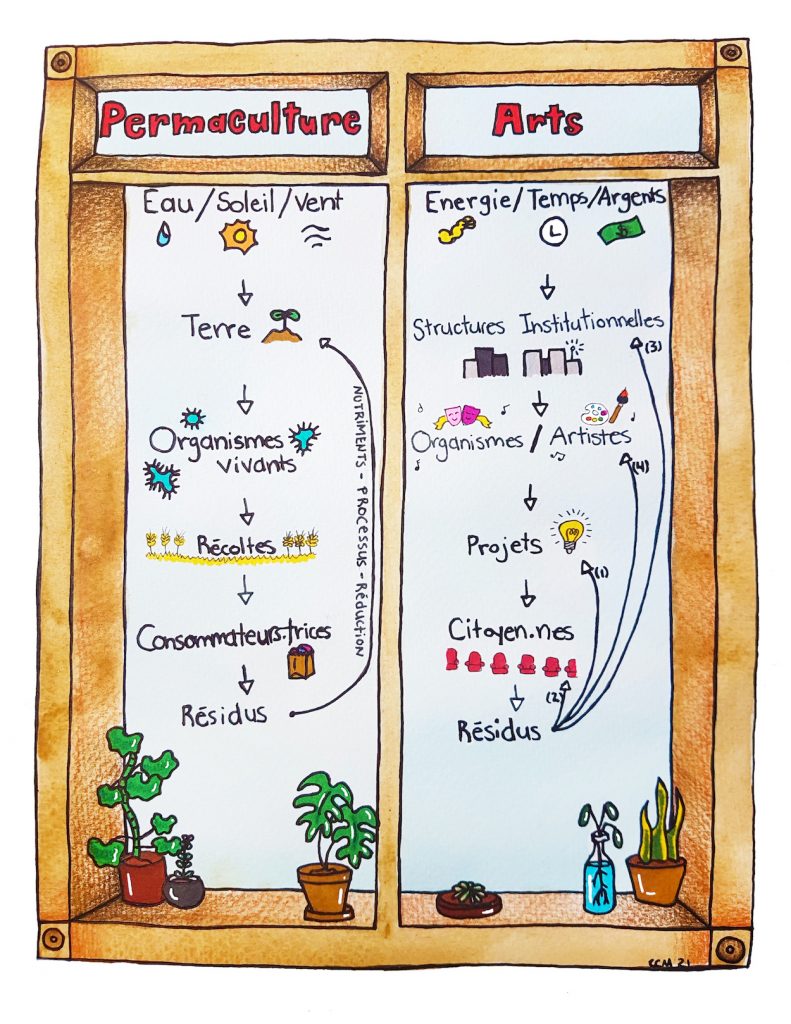 Permaculture
Eau/Soleil/Vent
Terre
Organismes
vivants
Récoltes
Consommateurs.trices
Résidus
NUTRIMENTS - PROCESSUS - Réduction
Arts
Energie/Temps/Argents
$
Structures Institutionnelles
(3)
Organismes / Artistes
(4)
Projets
(1)
Citoyen.nes
(2)
Résidus
CCM 21